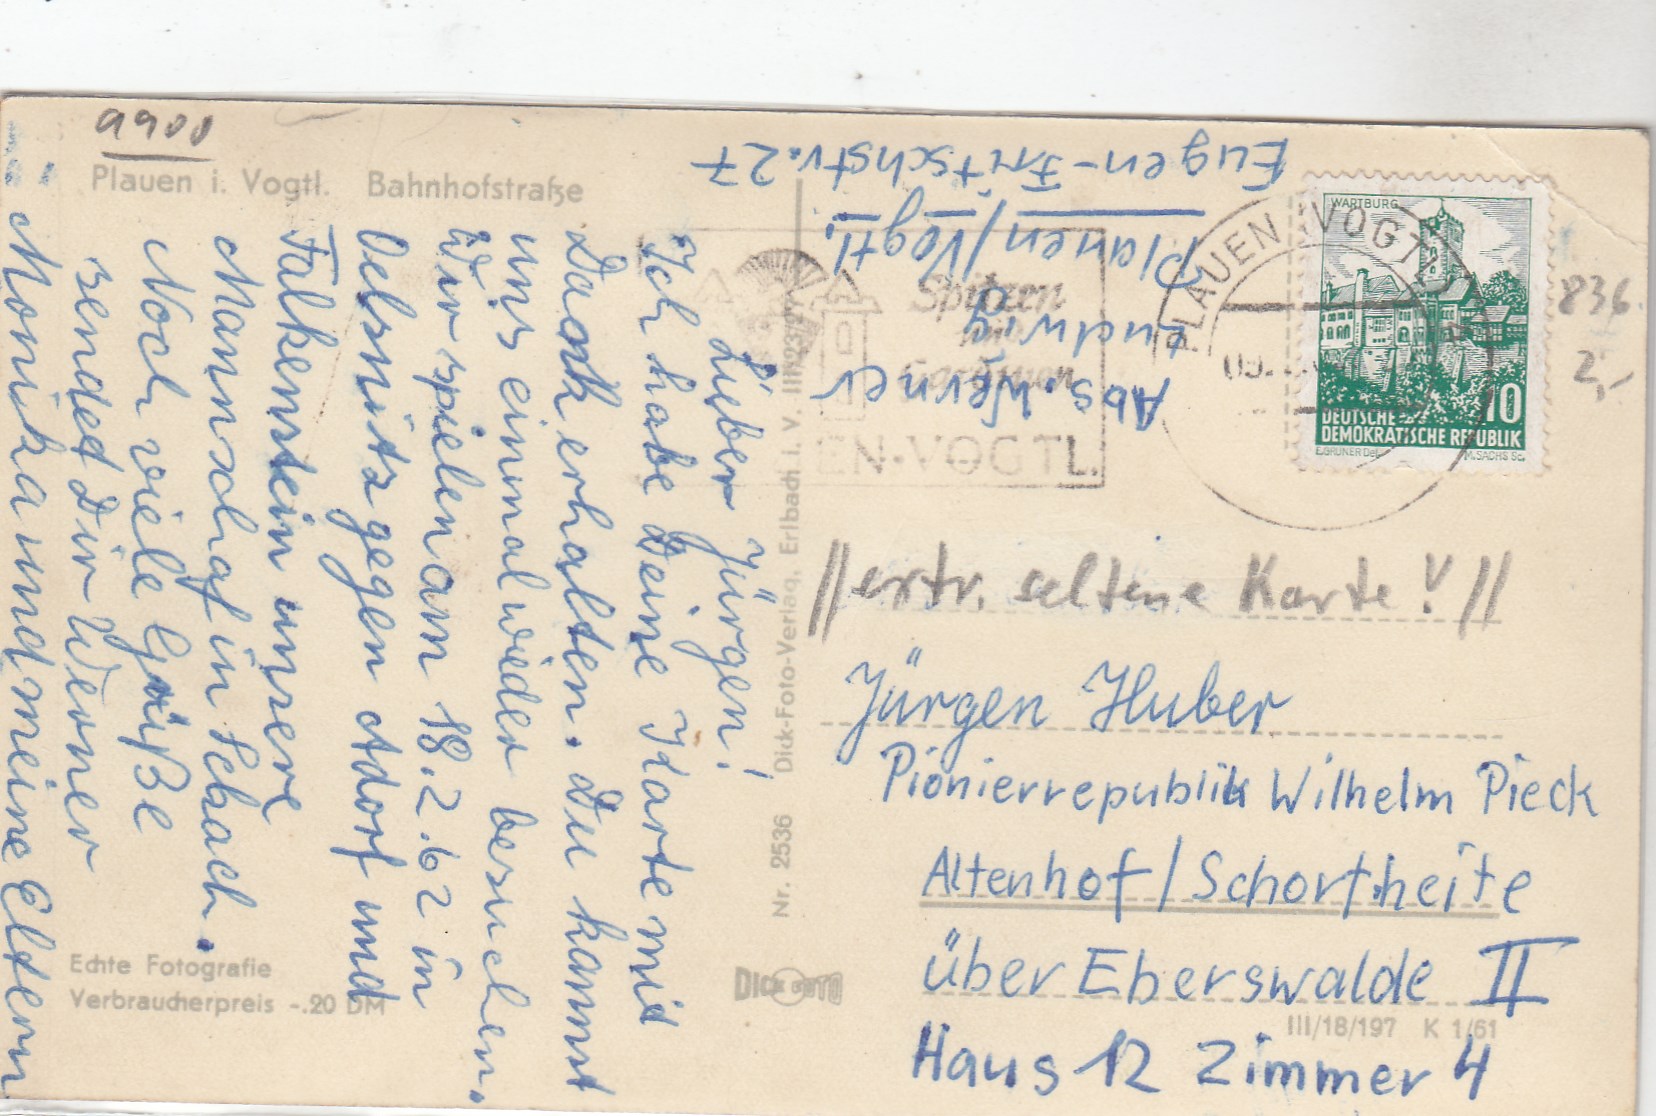 9900
Plauen i. Vogtl. Bahnhofstraße
Lieber Jürgen!
Ich habe Deine Karte mid
Dank erhalten. Du kannst
uns einmal wieder besuchen.
Wir spielen am 18.2.62 in
Oelsnitz gegen Adorf und
Falkenstein unsere
Mannschaf in Schach.
Noch viele Grüße
sendet Dir Werner
Monika und meine Eltern
Echte Fotografie
Verbraucherpreis -.20 DM
Nr. 2536 Dick-Foto-Verlag, Erlbach i. V.
DICK FOTO
Abs. Werner
Ludwig
Plauen/Vogtl.
Eugen-Fritschstr. 27
Spitzen
und
Gardinen
EN-VOGTL.
PLAUEN VOGTL
WARTBURG
10
DEUTSCHE
DEMOKRATISCHE REPUBLIK
E.GRUNER Del.
M. SACHS Sc.
836
2,-
//extr. seltene Karte!//
Jürgen Huber
Pionierrepublik Wilhelm Pieck
Altenhof/Schorfheite
über Eberswalde II
III/18/197 K 1/61
Haus 12 Zimmer 4